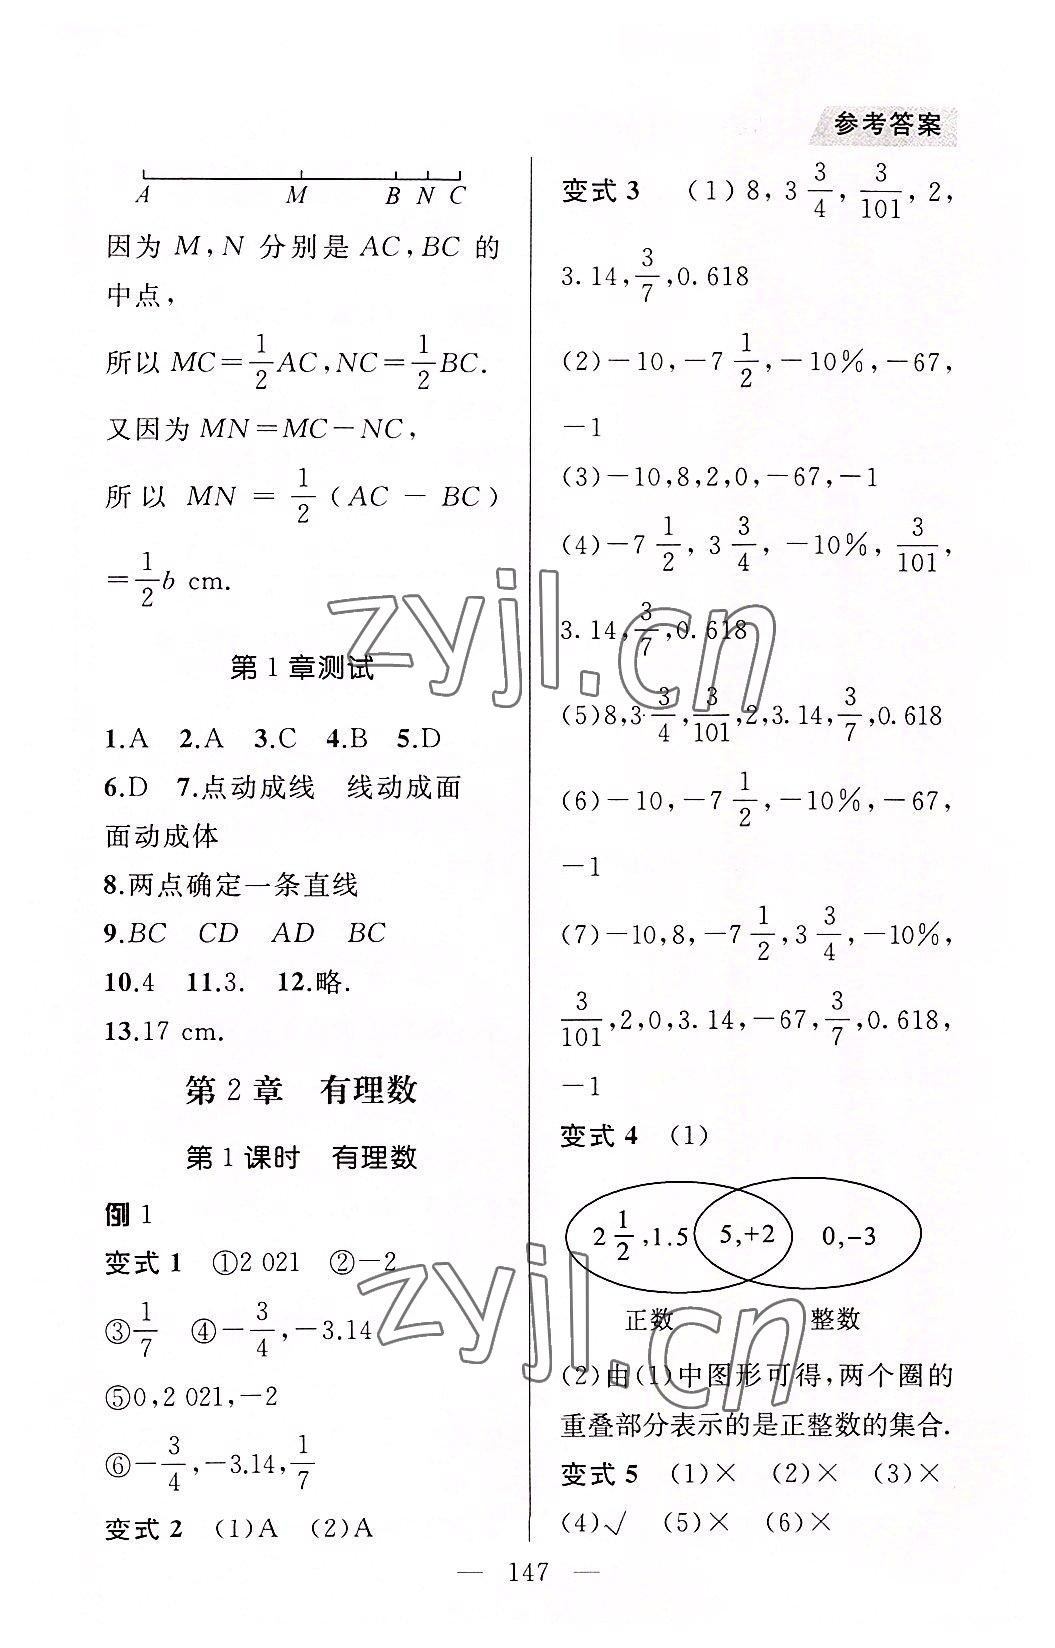 参考答案
A M B N C
因为 M,N 分别是 AC,BC 的
中点,
所以 MC=1/2AC,NC=1/2BC.
又因为 MN=MC-NC,
所以 MN = 1/2 (AC - BC)
=1/2b cm.
第1章测试
1.A 2.A 3.C 4.B 5.D
6.D 7.点动成线 线动成面
面动成体
8.两点确定一条直线
9.BC CD AD BC
10.4 11.3. 12.略.
13.17 cm.
第2章 有理数
第1课时 有理数
例1
变式1 ①2 021 ②-2
③1/7 ④-3/4,-3.14
⑤0,2 021,-2
⑥-3/4,-3.14,1/7
变式2 (1)A (2)A
变式3 (1)8,3 3/4,3/101,2,
3.14,3/7,0.618
(2)-10,-7 1/2,-10%,-67,
-1
(3)-10,8,2,0,-67,-1
(4)-7 1/2,3 3/4,-10%,3/101,
3.14,3/7,0.618
(5)8,3 3/4,3/101,2,3.14,3/7,0.618
(6)-10,-7 1/2,-10%,-67,
-1
(7)-10,8,-7 1/2,3 3/4,-10%,
3/101,2,0,3.14,-67,3/7,0.618,
-1
变式4 (1)
2 1/2,1.5 5,+2 0,-3
正数 整数
(2)由(1)中图形可得,两个圈的
重叠部分表示的是正整数的集合.
变式5 (1)× (2)× (3)×
(4)√ (5)× (6)×
— 147 —
zyjl.cn
zyjl.cn